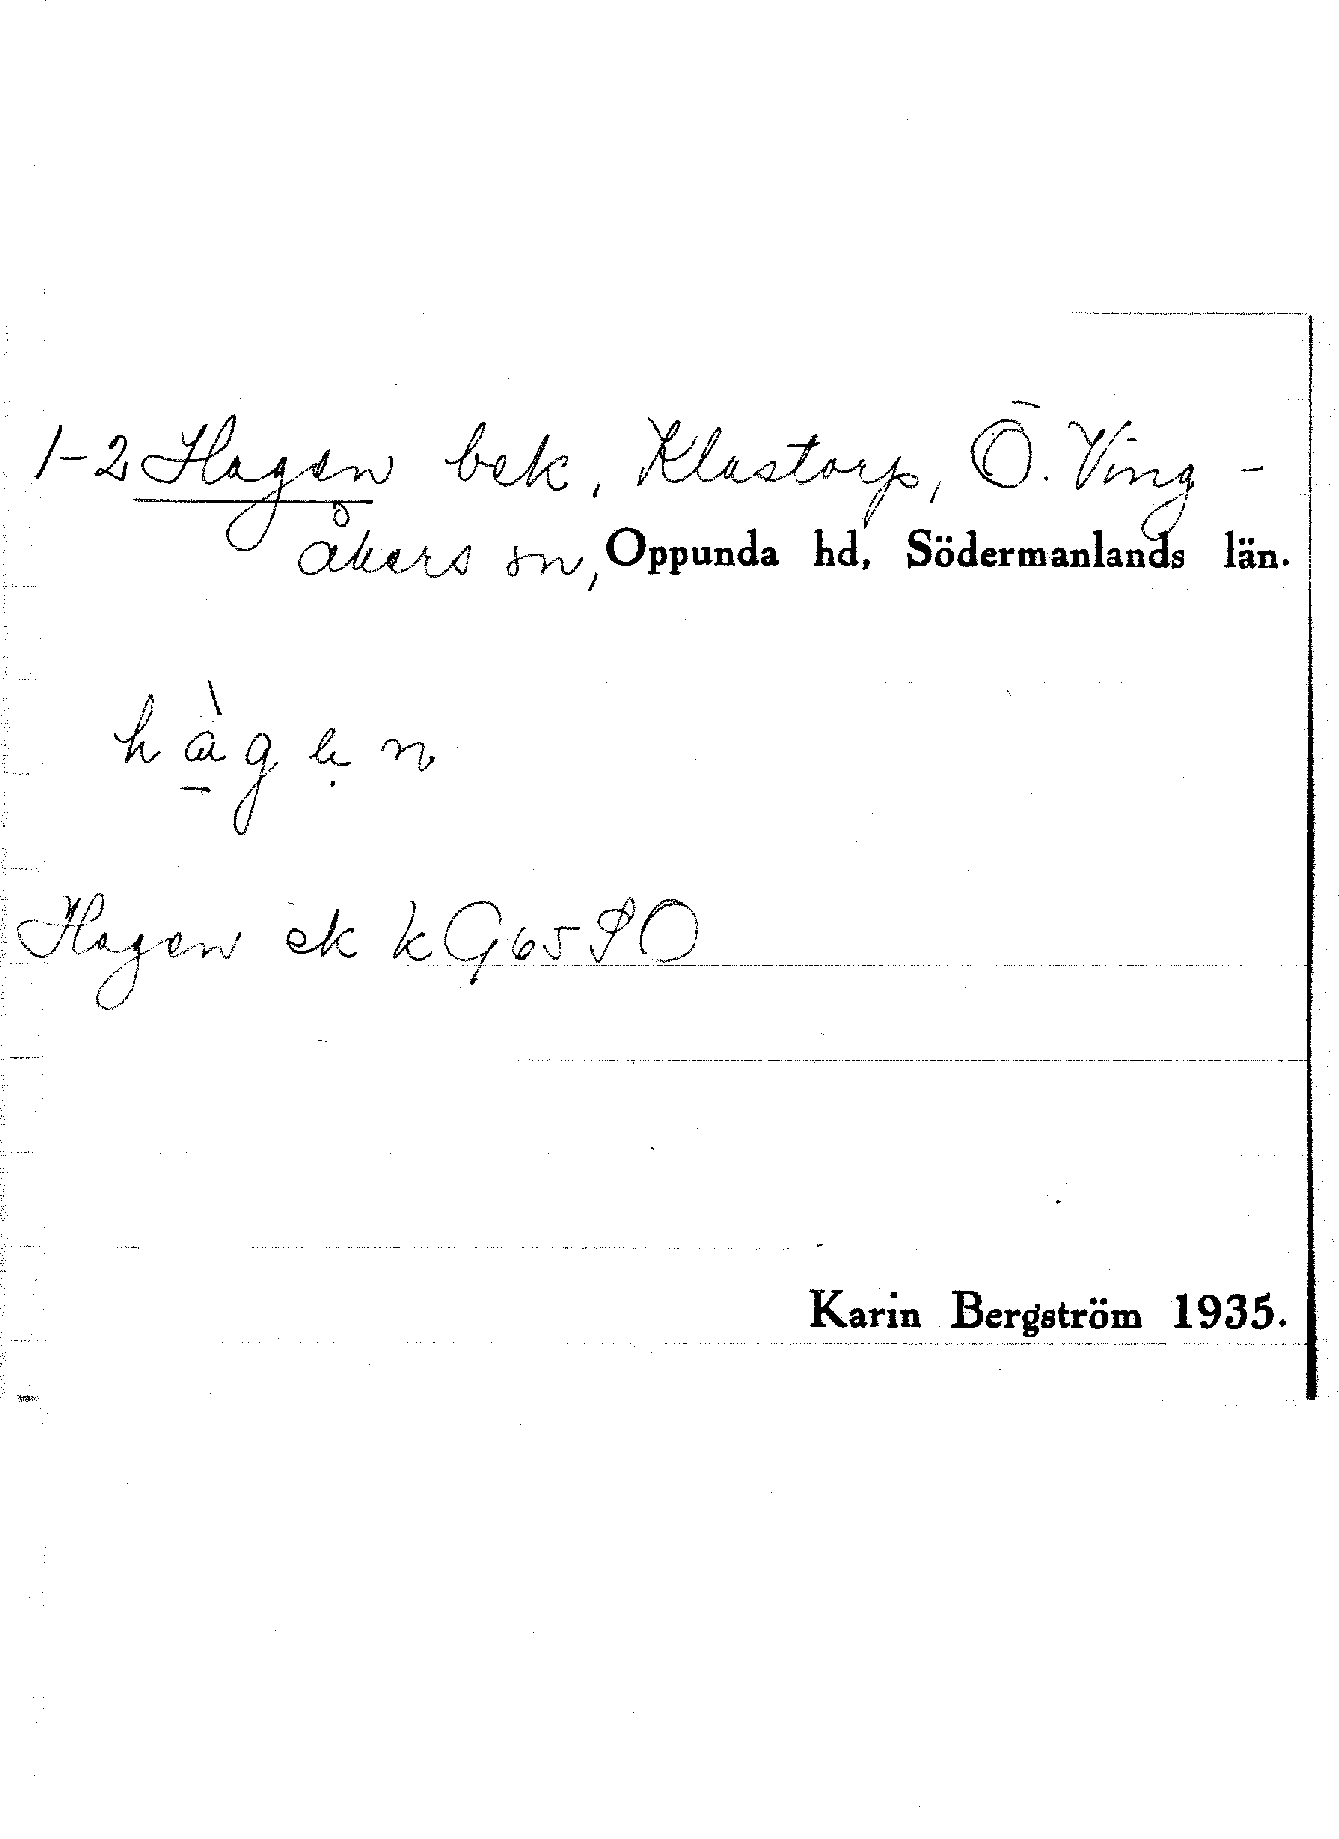 1-2 Hagen bek, Klastorp, Ö. Ving-
åkers sn, Oppunda hd, Södermanlands län.
hàgẹn
Hagen ek k G65SO
Karin Bergström 1935.